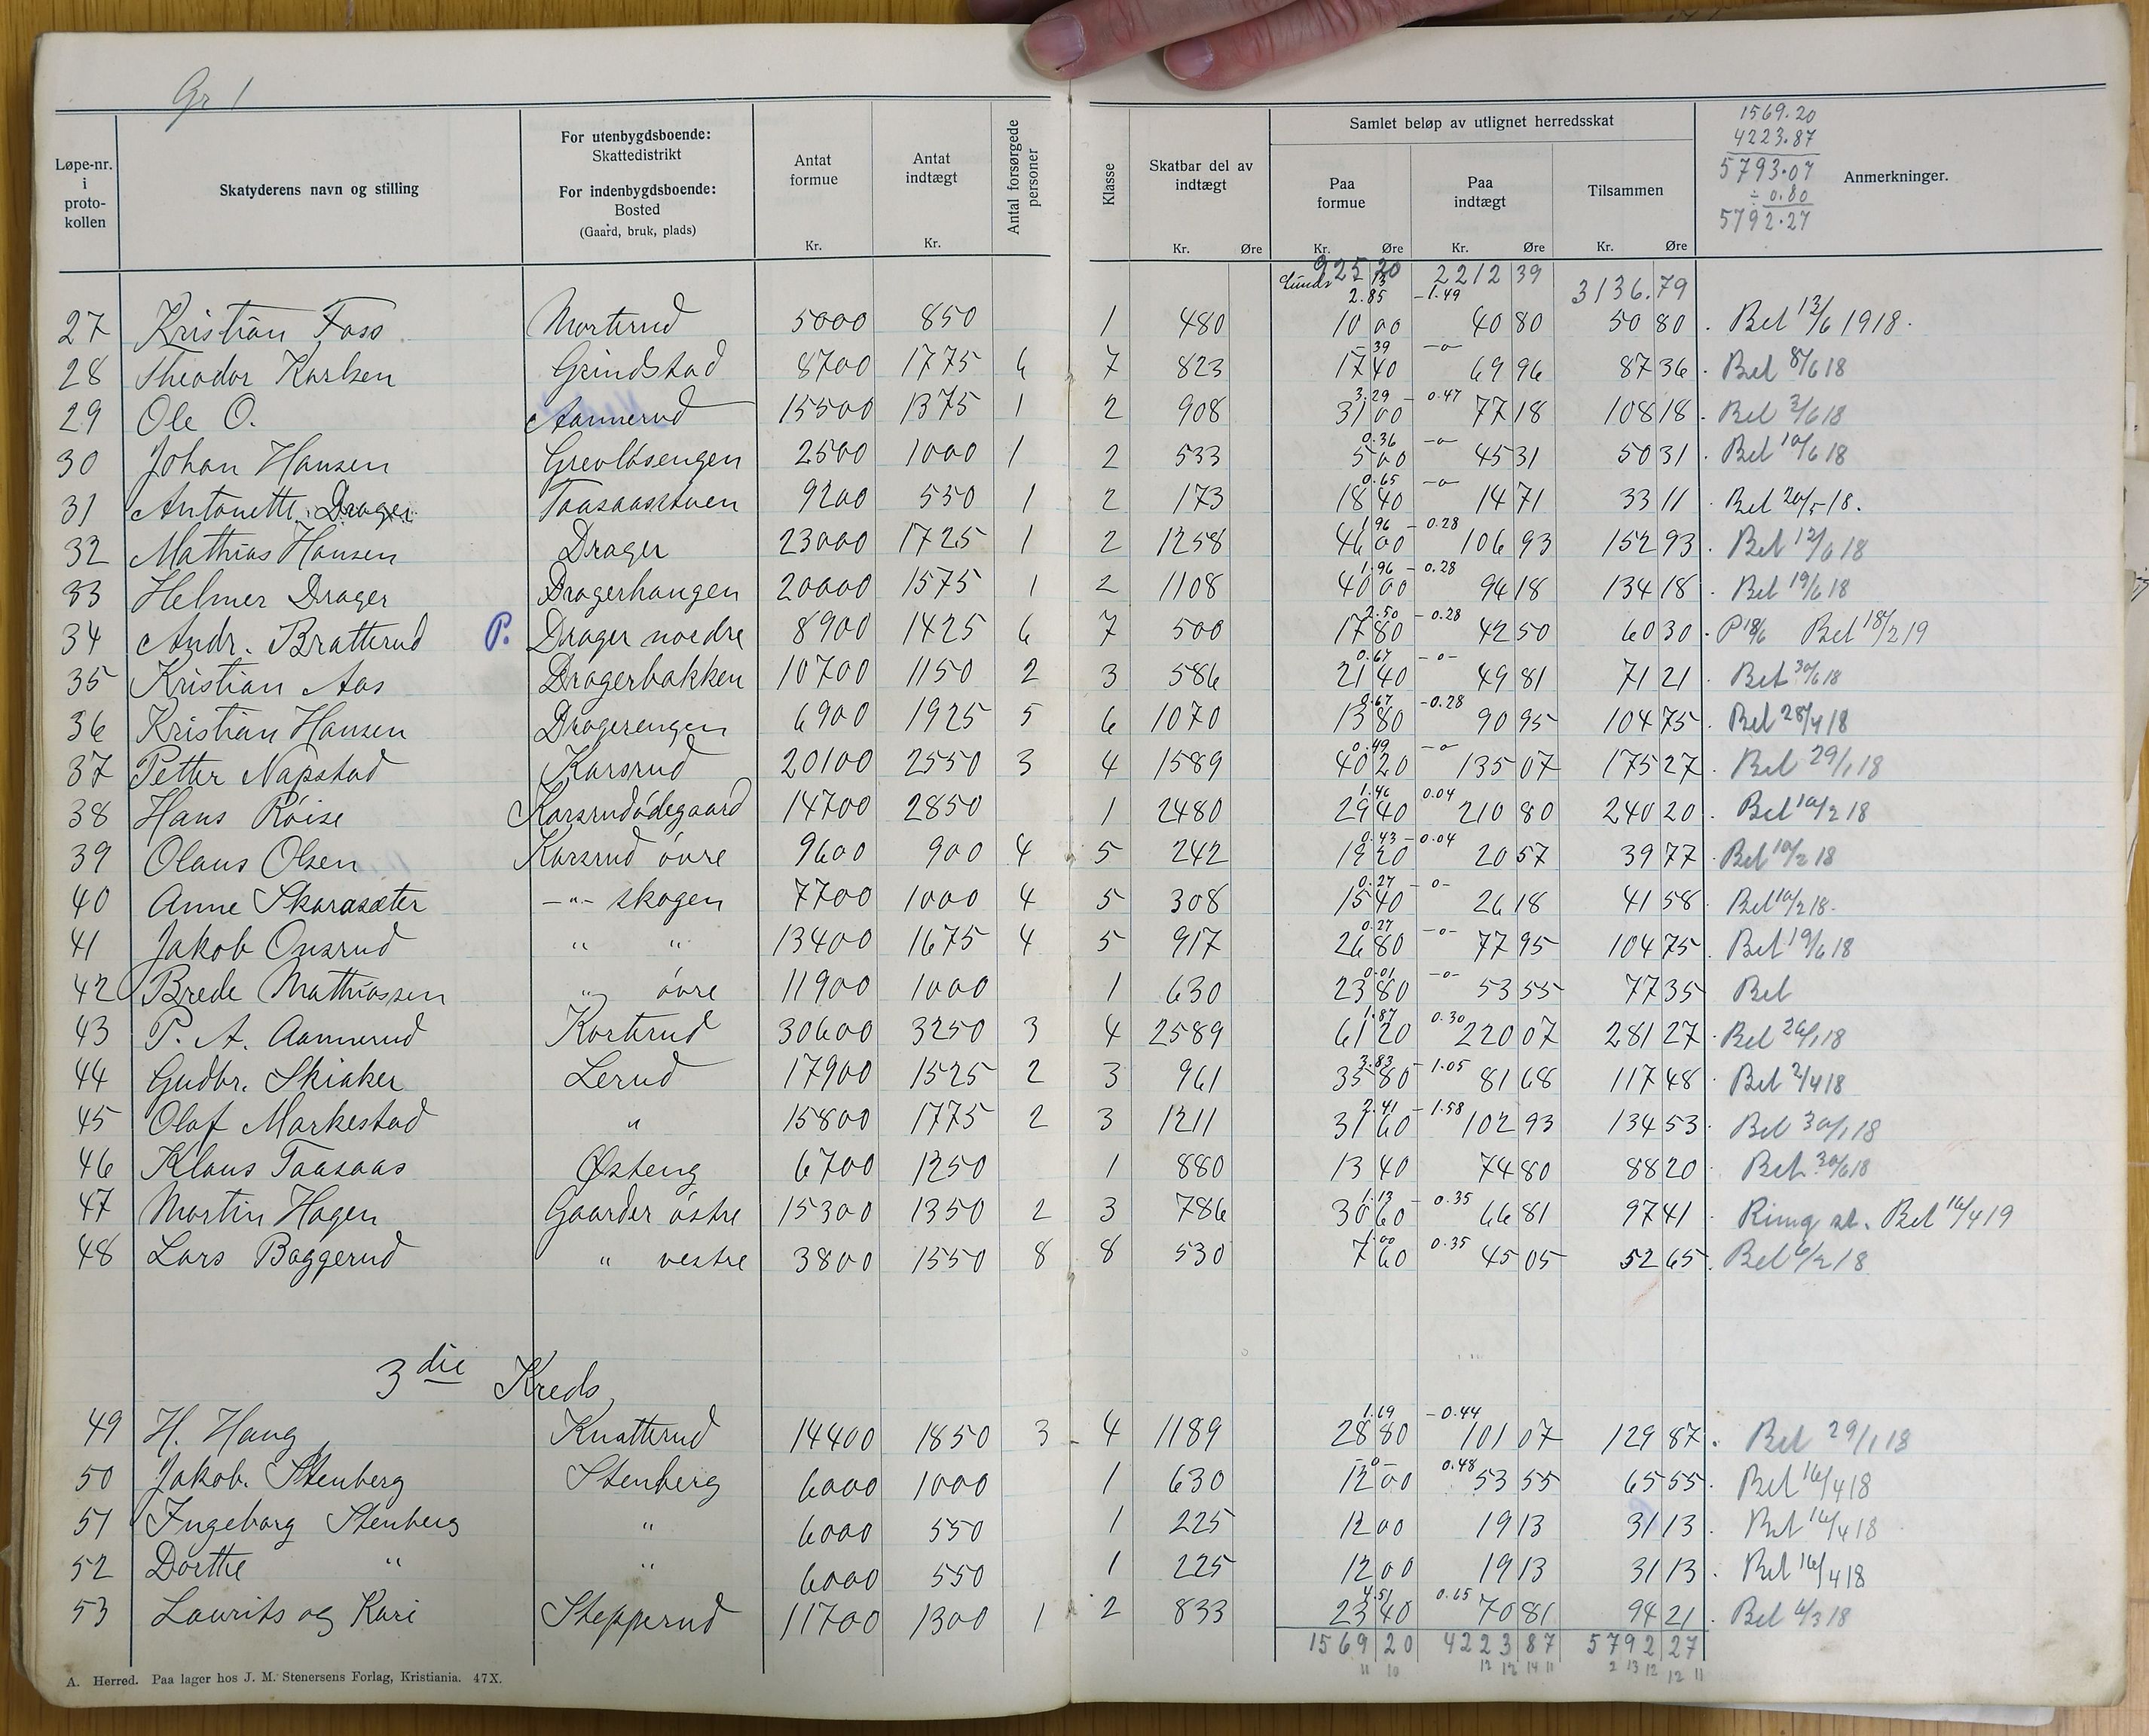 Gr 1
Løpe-nr. i proto-kollen
Skatyderens navn og stilling
For utenbygdsboende: Skattedistrikt
For indenbygdsboende: Bosted (Gaard, bruk, plads)
Antat formue Kr.
Antat indtægt Kr.
Antal forsørgede personer
Klasse
Skatbar del av indtægt Kr. Øre
Samlet beløp av utlignet herredsskat
Paa formue Kr. Øre
Paa indtægt Kr. Øre
Tilsammen Kr. Øre
Anmerkninger.
1569.20
4223.87
5793.07
÷ 0.80
5792.27
925 20 2212 39 3136.79
2.85 - 1.49
27 Kristian Foss Morterud 5000 850 1 480 10 00 40 80 50 80 . Bet 12/6 1918.
- 39 -o-
28 Theodor Karlsen Grindstad 8700 1775 6 7 823 17 40 69 96 87 36 . Bet 8/6 18
3.29 - 0.47
29 Ole O. Aannerud 15500 1375 1 2 908 31 00 77 18 108 18 . Bet 3/6 18
0.36 -o-
30 Johan Hansen Grevlåsengen 2500 1000 1 2 533 5 00 45 31 50 31 . Bet 10/6 18
0.65 -o-
31 Antonette Drager Taasaasstuen 9200 550 1 2 173 18 40 14 71 33 11 . Bet 20/5 18.
1.96 - 0.28
32 Mathias Hansen Drager 23000 1725 1 2 1258 46 00 106 93 152 93 . Bet 12/6 18
1.96 - 0.28
33 Helmer Drager Dragerhaugen 20000 1575 1 2 1108 40 00 94 18 134 18 . Bet 19/6 18
2.50 - 0.28
34 Andr. Bratterud P. Drager nordre 8900 1425 6 7 500 17 80 42 50 60 30 . P 18/6 Bet 18/2 19
0.67 -o-
35 Kristian Aas Dragerbakken 10700 1150 2 3 586 21 40 49 81 71 21 . Bet 30/6 18
0.67 - 0.28
36 Kristian Hansen Dragerengen 6900 1925 5 6 1070 13 80 90 95 104 75 . Bet 28/4 18
0.49 -o-
37 Petter Napstad Karsrud 20100 2550 3 4 1589 40 20 135 07 175 27 . Bet 29/1 18
1.46 0.04
38 Hans Röise Karsrudödegaard 14700 2850 1 2480 29 40 210 80 240 20 . Bet 10/2 18
0.43 - 0.04
39 Olaus Olsen Karsrud övre 9600 900 4 5 242 19 20 20 57 39 77 . Bet 10/2 18
0.27 -o-
40 Anne Skarasæter -"- skogen 7700 1000 4 5 308 15 40 26 18 41 58 Bet 10/2 18.
0.27 -o-
41 Jakob Onsrud " " 13400 1675 4 5 917 26 80 77 95 104 75 . Bet 19/6 18
0.01 -o-
42 Brede Mathiassen " övre 11900 1000 1 630 23 80 53 55 77 35 Bet
1.87 0.30
43 P. A. Aannerud Korterud 30600 3250 3 4 2589 61 20 220 07 281 27 . Bet 26/1 18
3.83 - 1.05
44 Gudbr. Skiaker Lerud 17900 1525 2 3 961 35 80 81 68 117 48 . Bet 2/4 18
2.41 - 1.58
45 Olaf Markestad " 15800 1775 2 3 1211 31 60 102 93 134 53 . Bet 30/1 18
46 Klaus Taasaas Østeng 6700 1250 1 880 13 40 74 80 88 20 . Bet 30/6 18
1.13 - 0.35
47 Martin Hagen Gaarder östre 15300 1350 2 3 786 30 60 66 81 97 41 . Ring sk. Bet 16/4 19
1.00 0.35
48 Lars Baggerud " vestre 3800 1550 8 8 530 7 60 45 05 52 65 . Bet 6/2 18
3die Kreds
1.69 - 0.44
49 H. Haug Knatterud 14400 1850 3 4 1189 28 80 101 07 129 87 . Bet 29/1 18
-o- 0.48
50 Jakob. Stenberg Stenberg 6000 1000 1 630 12 00 53 55 65 55 . Bet 16/4 18
51 Ingeborg Stenberg " 6000 550 1 225 12 00 19 13 31 13 . Bet 16/4 18
52 Dorthe " " 6000 550 1 225 12 00 19 13 31 13 . Bet 16/4 18
4.51 0.65
53 Laurits og Kari Stepperud 11700 1300 1 2 833 23 40 70 81 94 21 . Bet 6/3 18
1569 20 4223 87 5792 27
11 10 12 12 14 11 2 13 12 12 11
A. Herred. Paa lager hos J. M. Stenersens Forlag, Kristiania. 47X.